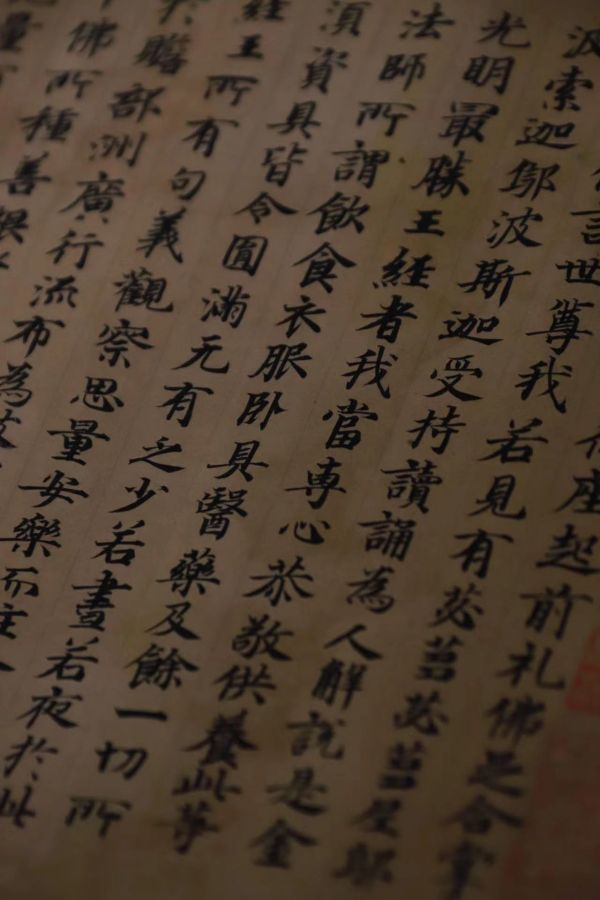 座起前礼佛足合掌
言世尊我若見有苾芻苾芻尼鄔
波索迦鄔波斯迦受持讀誦為人解說是金
光明最勝王經者我當専心恭敬供養此等
法師所謂飲食衣服卧具醫藥及餘一切所
須資具皆令圓滿无有乏少若晝若夜於此
經王所有句義觀察思量安樂而住
於贍部洲廣行流布為
佛所種善根
量